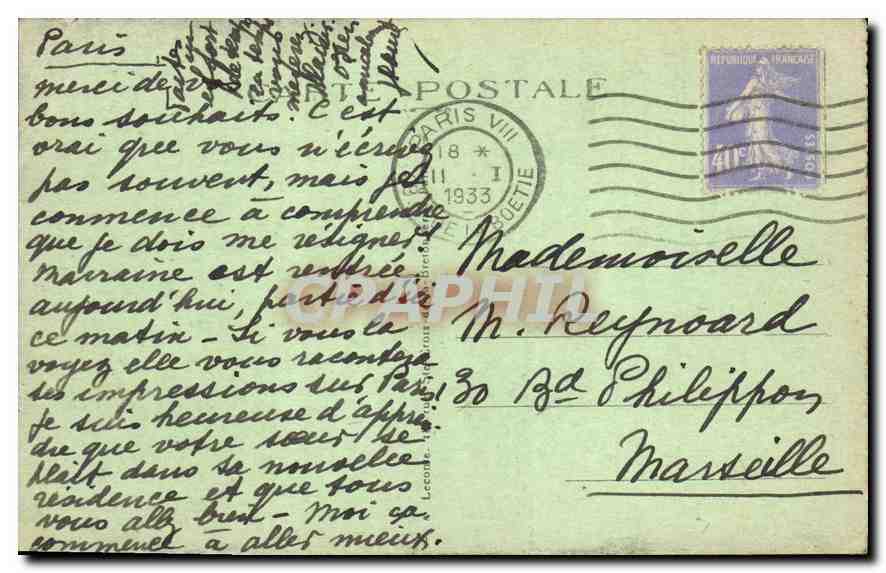 Paris
merci de
bons souhaits. C'est
vrai que vous n'écrivez
pas souvent, mais je
commence à comprendre
que je dois me résigner!
Marraine est rentrée
aujourd'hui, partie d'ici
ce matin – Si vous la
voyez elle vous racontera
ses impressions sur Paris!
Je suis heureuse d'appren-
dre que votre sœur se
plait dans sa nouvelle
résidence et que tous
vous allez bien – Moi ça
commence à aller mieux.
CARTE POSTALE
PARIS VIII
18 *
11 · I
1933
BOETIE
REPUBLIQUE FRANÇAISE
40c
POSTES
Mademoiselle
M. Reynoard
30 Bd Philippon
Marseille
CPAPHIL
Leconte